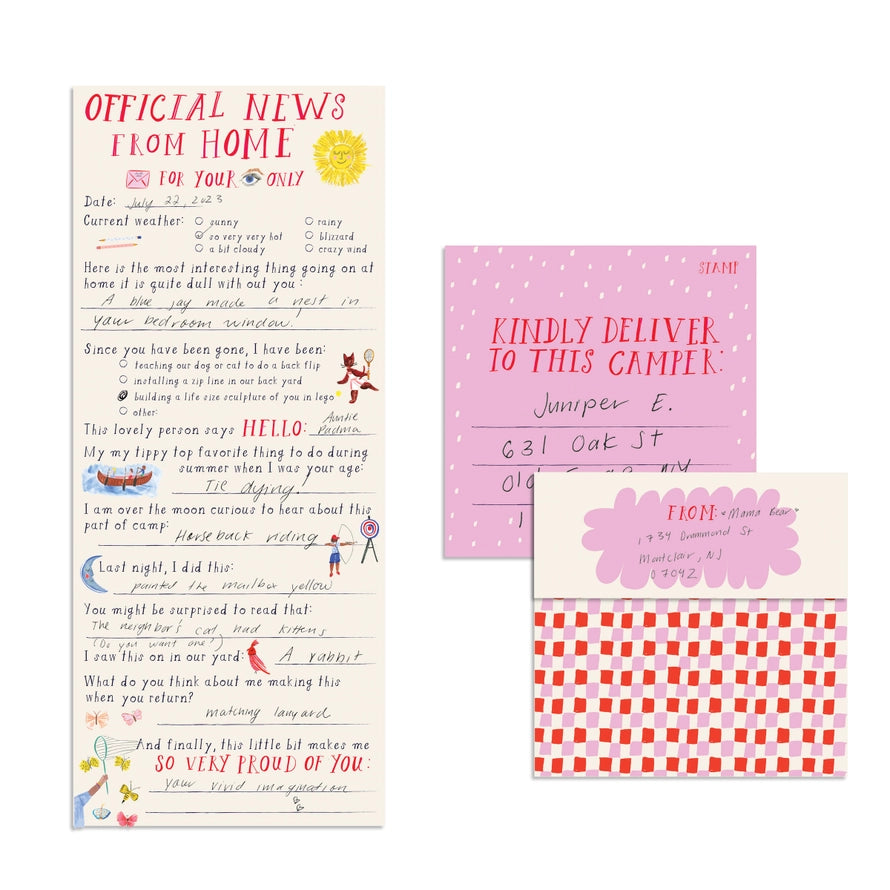 OFFICIAL NEWS
FROM HOME
FOR YOUR ONLY
Date: July 22, 2023
Current weather: sunny rainy
so very very hot blizzard
a bit cloudy crazy wind
Here is the most interesting thing going on at
home it is quite dull with out you:
A blue jay made a nest in
your bedroom window!
Since you have been gone, I have been:
teaching our dog or cat to do a back flip
installing a zip line in our back yard
building a life size sculpture of you in lego
other:
This lovely person says HELLO: Auntie
Padma
My my tippy top favorite thing to do during
summer when I was your age:
Tie dying!
I am over the moon curious to hear about this
part of camp:
Horseback riding
Last night, I did this:
painted the mailbox yellow
You might be surprised to read that:
The neighbor's cat had kittens
(Do you want one?)
I saw this on in our yard: A rabbit
What do you think about me making this
when you return?
matching lanyard
And finally, this little bit makes me
SO VERY PROUD OF YOU:
your vivid imagination
STAMP
KINDLY DELIVER
TO THIS CAMPER:
Juniper E.
631 Oak St
Old NY
1
FROM: Mama Bear
1734 Drummond St
Montclair, NJ
07042